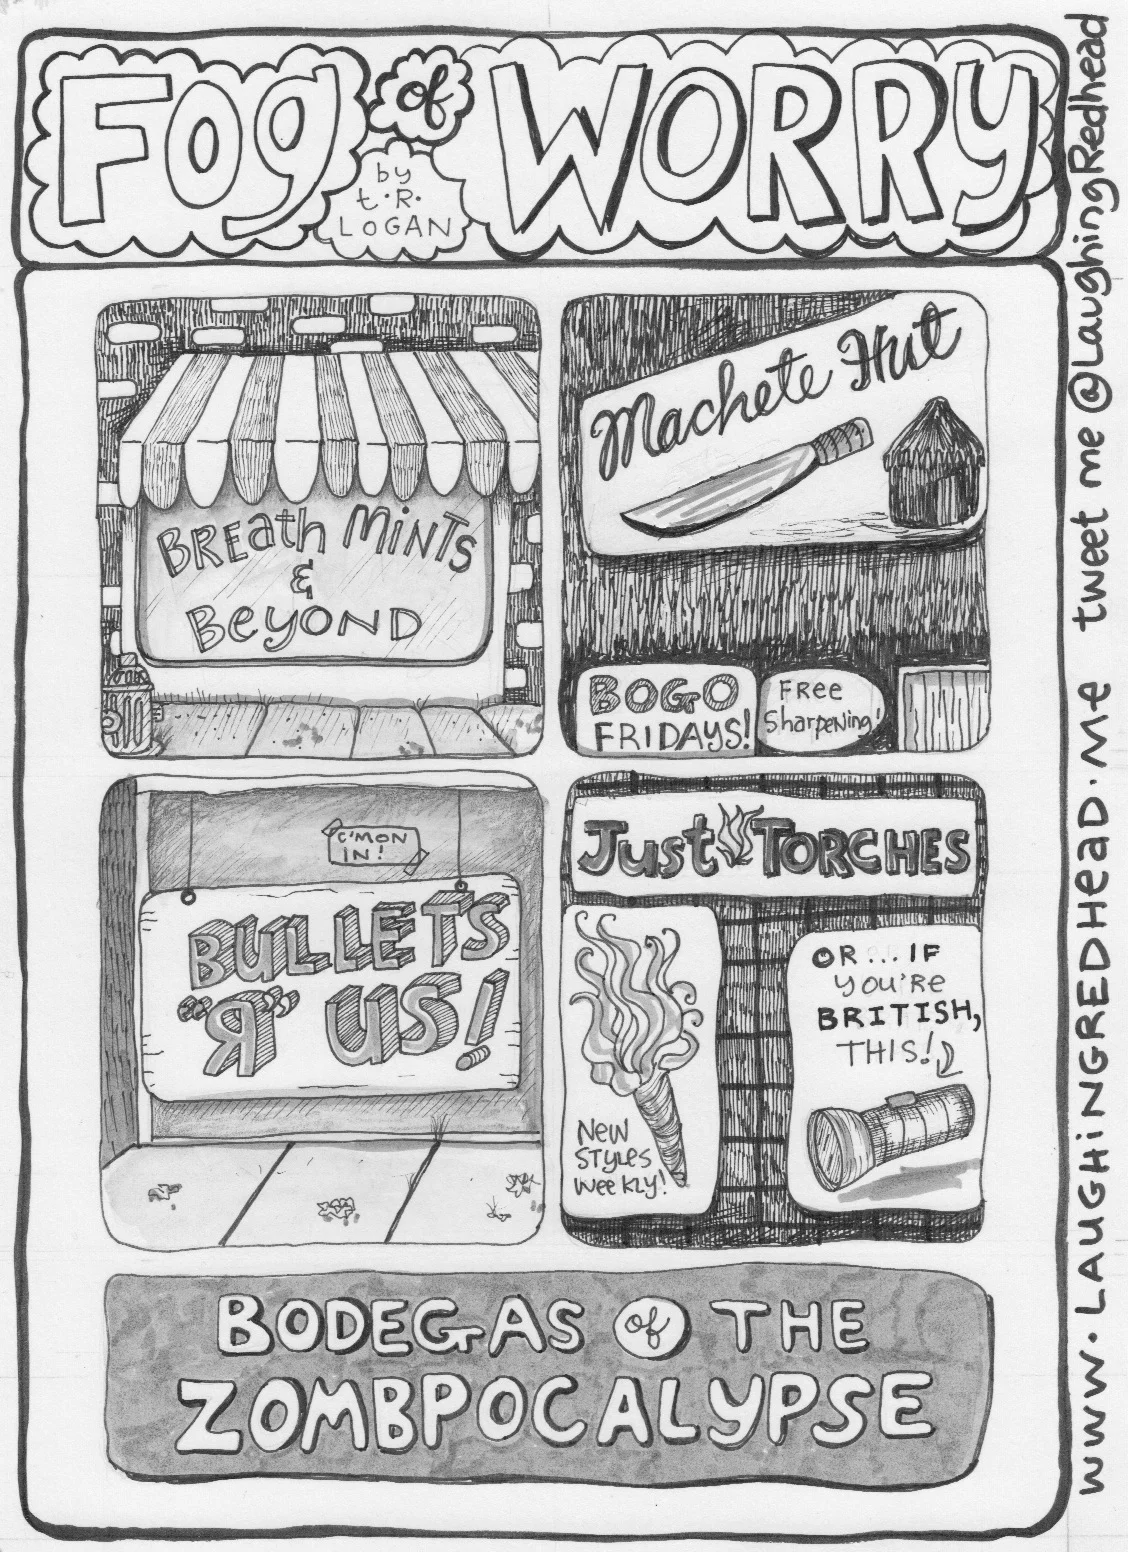 FOG of WORRY
by
t.R.
LOGAN
BREath MiNTS
&
BeYOND
Machete Hut
BOGO
FRIDAYS!
FREE
Sharpening!
C'MON
IN!
BULLETS
"Я" US!
Just TORCHES
NEW
STYLES
WEEKLY!
OR... IF
YOU'RE
BRITISH,
THIS!
BODEGAS of THE
ZOMBPOCALYPSE
www.LAUGHiNGREDHEaD.Me tweet me @LaughingRedhead